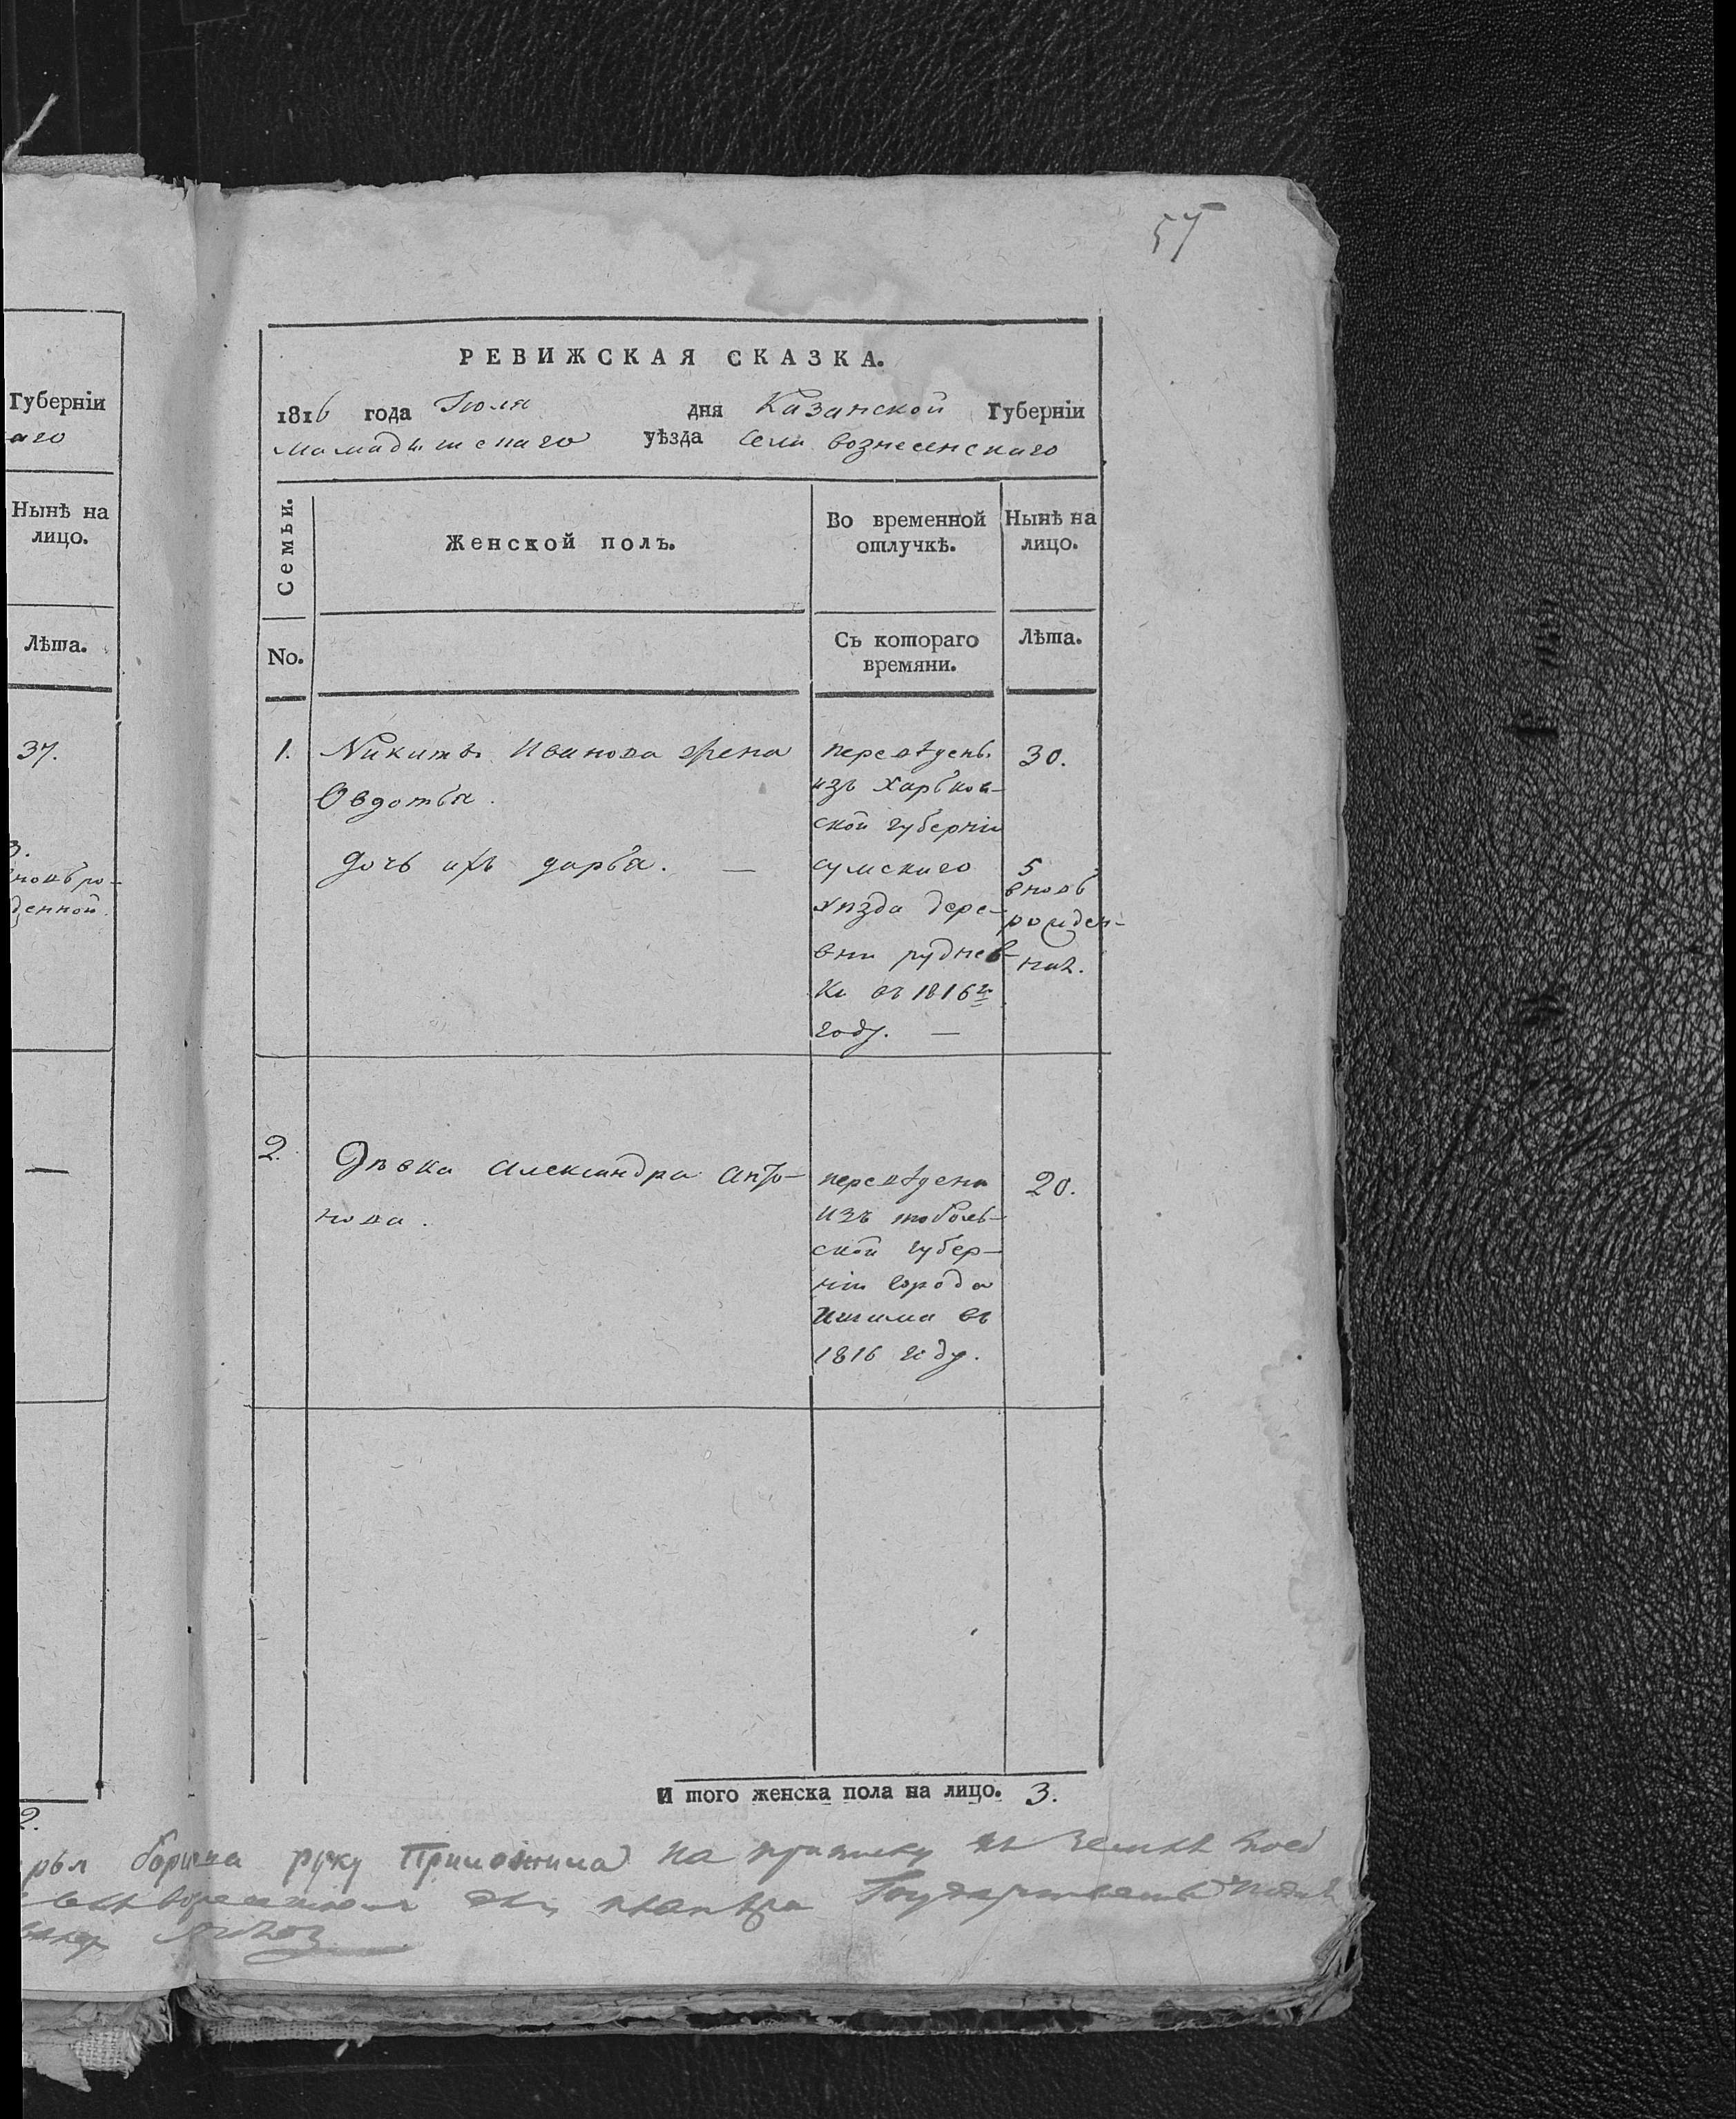 57
Губерніи
аго
Нынѣ на
лицо.
Лѣта.
37.
3.
вновь ро-
денной.
2.
РЕВИЖСКАЯ СКАЗКА.
1816 года Іюля дня Казанской Губерніи
мамадышскаго уѣзда села вознесенскаго
Семьи.
Женской полъ.
Во временной
отлучкѣ.
Нынѣ на
лицо.
No.
Съ котораго
времяни.
Лѣта.
1. Никиты Иванова жена
Овдотья.
дочь ихъ дарья. —
переведены
изъ харьков-
ской губерніи
сумскаго
уѣзда дере-
вни руднев-
ки въ 1816м
году. —
30.
5
вновь
рожден-
ная.
2. Дѣвка Александра Анто-
нова.
переведена
изъ тоболь-
ской губер-
ніи города
Ишима въ
1816 году.
20.
И того женска пола на лицо. 3.
руку Приложила на